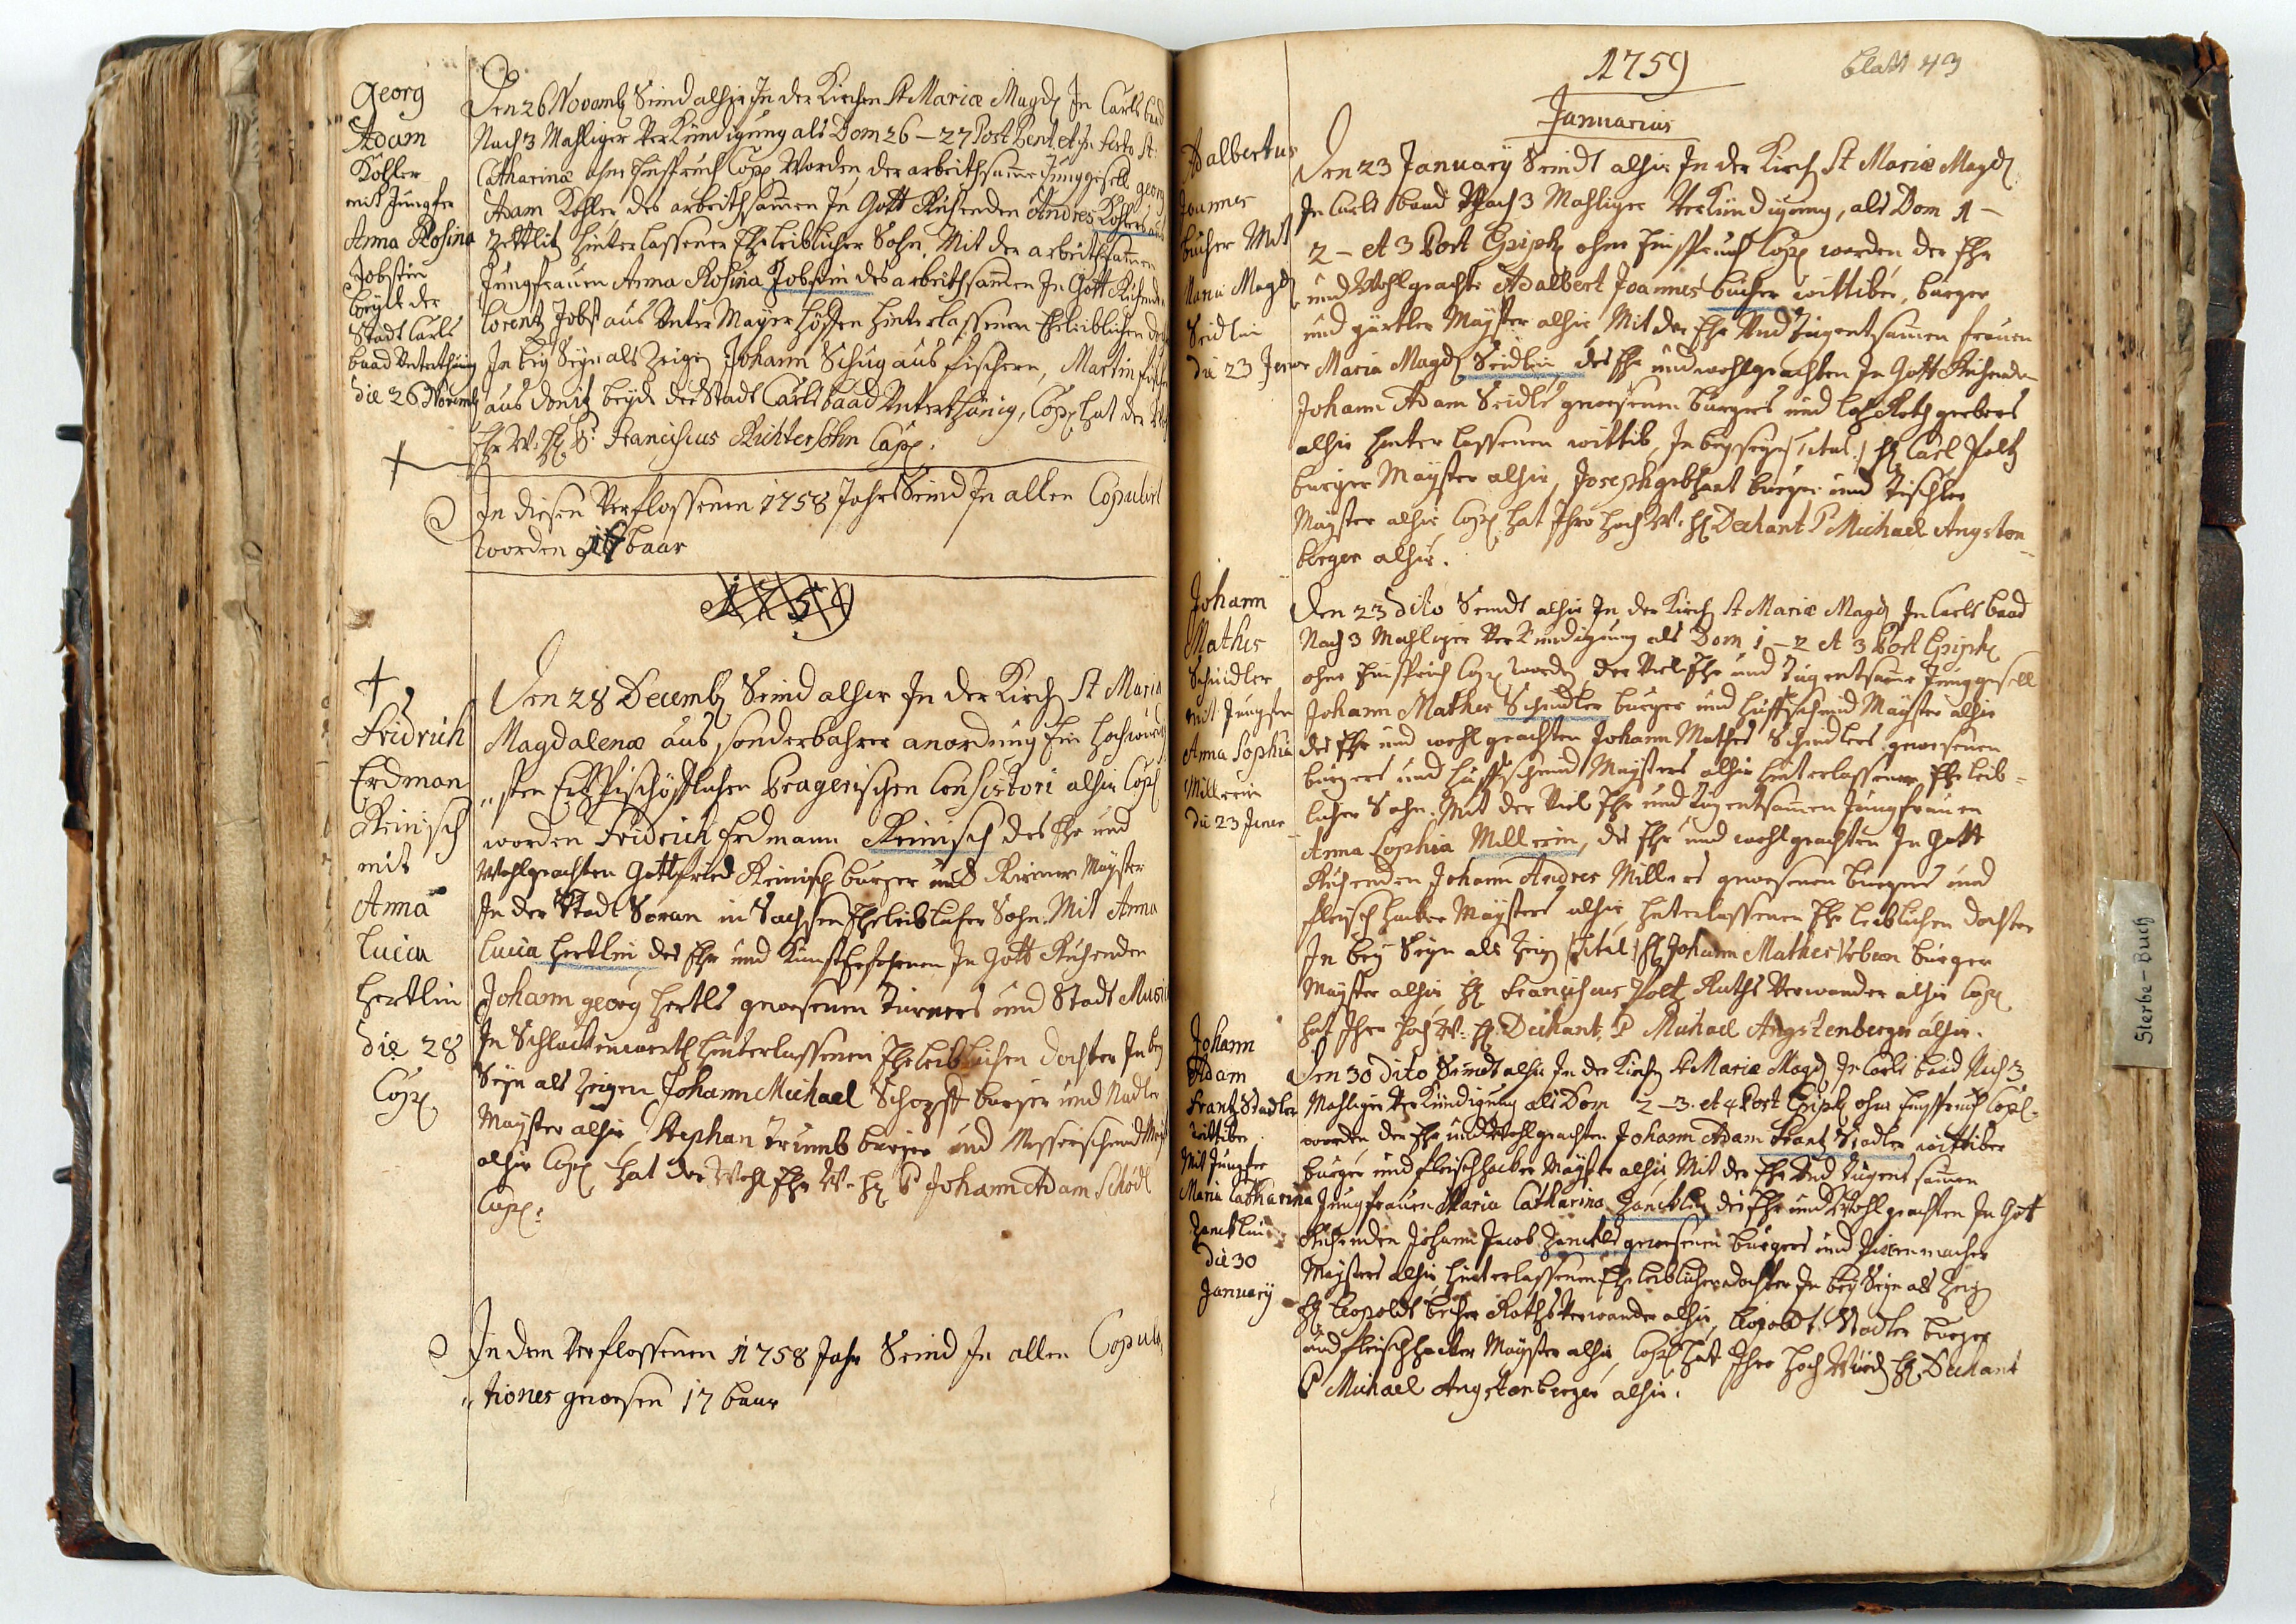 Georg
Adam
Kohler
mit Jungfer
Anna Rosina
Jobstin
beyde der
Stadt Carls
baad Unterthänig
die 26 Novemb
Den 26 Novemb Seind alhir In der Kirchen St Mariæ Magd In Carlsbaad
Nach 3 Mahliger Verkündigung als Dom 26 – 27 Post Pent. et In Festo St.
Catharinæ ohne Einspruch Cop Worden, der arbeithsame Junggesell georg
Adam Kohler des arbeithsamen In Gott Ruhenden Andres Kohlers aus
Zettlitz hinterlassener Eheleiblicher Sohn. Mit der arbeithsamen
Jungfrauen Anna Rosina Jobstin des arbeithsamen In Gott Ruhenden
Lorentz Jobst aus Unter Mayerhöffen hinterlassenen Eheleiblichen
In bey Seyn als Zeigen Johann Schug aus Fischern, Martin
aus Donitz beyde der Stadt Carlsbaad Unterthänig, Cop hat der
Ehr W. H P. Franciscus Richter Sohn Capp.
In diesen Verflossenen 1758 Jahr Seind In allen Copulirt
worden 17 baar
1759
Fridrich
Erdman
Reinisch
mit
Anna
Lucia
Hertlin
die 28
Cop
Den 28 Decemb Seind alhir In der Kirch St Maria
Magdalenæ aus sonderbahrer anordnung Ein Hochwürdig
"sten Ertzbischöfflichen Pragerischen Consistori alhir Cop
worden Fridrich Erdmann Reinisch des Ehr und
Wohlgeachten Gottfried Reinisch burger und Riemer Mayster
In der Stadt Soran in Sachsen Eheleiblicher Sohn. Mit Anna
Lucia Hertlin des Ehr und Kunsterfahrnen In Gott Ruhenden
Johann georg Hertls gewesenen Türners und Stadt Music
In Schlackenwerth hinterlassenen Eheleiblichen dochter In bey
Seyn als Zeigen Johann Michael Schopff burger und Nadler
Mayster alhir, Stephan Trumb burger und Messerschmid
alhir Cop hat der Wohl Ehr W. H P Johann Adam Schödl
Capp.
In dem Verflossenen 1758 Jahr Seind In allen Copula
"tiones gewesen 17 baar
1759
blatt 43
Januarius
Adalbertus
Joannes
bucher Mit
Maria Magd
Seidlin
die 23 Jener
Den 23 January Seindt alhir In der Kirch St Mariæ Magd
In Carlsbaad Nach 3 Mahliger Verkündigung, als Dom 1 –
2 – et 3 Post Epiph ohne Einspruch Cop worden der Ehr
und Wohlgeachte Adalbert Joannes bucher wittiber, burger
und gürtler Mayster alhir, Mit der Ehr Und Tugentsamen frauen
Maria Magd Seidlin des Ehr und wohlgeachten In Gott Ruhenden
Johann Adam Seidls gewesenen burgers und Lohrothgerbers
alhir hinterlassenen wittib, In beyseyn (titul.) H Carl Poltz
burger Mayster alhir, Joseph gebhart burger und Tischler
Mayster alhir, Cop hat Ihro Hoch W. H Dechant P Michael Angsten
berger alhir.
Johann
Mathes
Schindler
mit Jungfer
Anna Sophia
Millerin
die 23 Jener
Den 23 dito Seindt alhir In der Kirch St Mariæ Magd In Carlsbaad
Nach 3 Mahliger Verkündigung als Dom 1 – 2 et 3 Post Epiph
ohne Einspruch Cop worden, der Viel Ehr und Tugentsame Junggesell
Johann Mathes Schindler burger und Huffschmid Mayster alhir
des Ehr und wohlgeachten Johann Mathes Schindlers gewesenen
burgers und Huffschmid Maysters alhir hinterlassener Eheleib-
licher Sohn. Mit der Viel Ehr und Tugentsamen Jungfrauen
Anna Sophia Millerin, des Ehr und wohlgeachten In Gott
Ruhenden Johann Andres Millers gewesenen burgers und
fleischhacker Maysters alhir, hinterlassenen Eheleiblichen dochter
In bey Seyn als Zeig (titul.) H Johann Mathes Urban burger
Mayster alhir, H Franciscus Poltz Raths Verwander alhir Cop
hat Ihro Hoch W. H. Dechant, P Michael Angstenberger alhir.
Johann
Adam
Frantz Stadler
wittiber
Mit Jungfer
Maria Catharina
Zancklin
die 30
January
Den 30 dito Seindt alhir In der Kirch St Mariæ Magd In Carlsbaad Nach 3
Mahliger Verkündigung als Dom 2 – 3. et 4 Post Epiph ohne Einspruch Copl.
worden der Ehr und Wohlgeachten Johann Adam Frantz Stadler wittiber
burger und fleischhacker Mayster alhir, Mit der Ehr Und Tugent samen
Jungfrauen Maria Catharina Zancklin des Ehr und Wohlgeachten In Gott
Ruhenden Johann Jacob Zanckls gewesenen burgers und
Maysters alhir hinterlassenen Eheleiblichen dochter In bey Seyn als Zeig
H Leopoldt becher Raths Verwander alhir, Leopoldt Stadler burger
und fleischhacker Mayster alhir, Cop hat Ihro Hoch Würd H. Dechant
P Michael Angstenberger alhir.
Sterbe-Buch